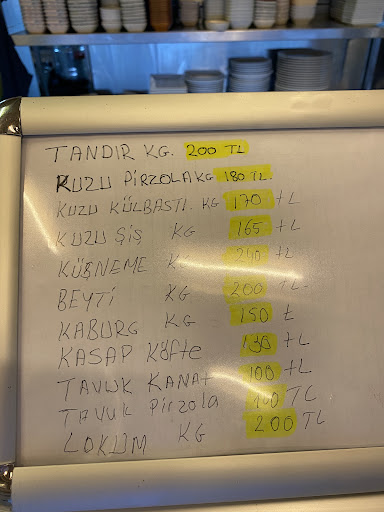 TANDIR KG. 200 TL
KUZU PİRZOLA KG 180 TL.
KUZU KÜLBASTI. KG 170 tL
KUZU ŞİŞ KG 165 tL
KÜŞNEME tL
BEYTİ KG 200 TL.
KABURG KG 150 t
KASAP Köfte 130 tL
TAVUK KANAt 100 tL
TAVUK Pirzola TL
LOKUM KG 200 TL